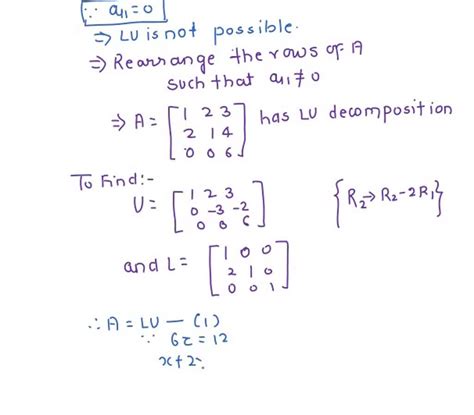 ∵ a₁₁ = 0
⇒ LU is not possible.
⇒ Rearrange the rows of A
such that a₁₁ ≠ 0
⇒ A = [1 2 3
2 1 4
0 0 6] has LU decomposition
To Find:-
U = [1 2 3
0 -3 -2
0 0 6] {R₂→R₂-2R₁}
and L = [1 0 0
2 1 0
0 0 1]
∴ A = LU — (1)
∵ 6z = 12
x+2